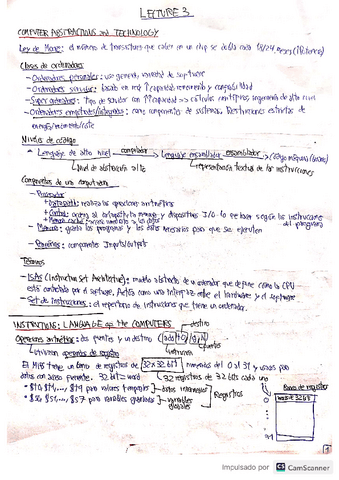 LECTURE 3
COMPUTER ABSTRACTIONS and TECHNOLOGY
Ley de Moore: el número de transistores que caben en un chip se dobla cada 18/24 meses
Clases de ordenadores
- Ordenadores personales: uso general, variedad de software
- Ordenadores servidor: basado en red, capacidad, rendimiento y
- Super ordenadores: tipo de servidor con capacidad → cálculos científicos, ingeniería de alto nivel
- Ordenadores empotrados/integrados: como componentes de sistemas. Restricciones estrictas de
energía/rendimiento/coste
Niveles de código
* Lenguaje de alto nivel compilador → Lenguaje ensamblador ensamblador → código máquina
Nivel de abstracción alto
representación textual de las instrucciones
Componentes de un computador
- Procesador
+ Datapath: realiza las operaciones aritméticas
+ Control: ordena al datapath, la memoria y dispositivos I/O lo que hacer según las instrucciones
del programa
+ Memoria caché:
- Memoria: guarda los programas y los datos necesarios para que se ejecuten
- Periféricos: componentes Input/Output
Términos
- ISAs (Instruction Set Architecture): modelo abstracto de un ordenador que define como la CPU
está controlada por el software. Actúa como una interfaz entre el hardware y el software
- Set de instrucciones: el repertorio de instrucciones que tiene un ordenador.
INSTRUCTIONS: LANGUAGE of the COMPUTERS
destino
Operaciones aritméticas: dos fuentes y un destino
fuentes
Utilizan operandos de registro
El MIPS tiene un banco de registros de 32x32 bit numerados del 0 al 31 y usados para
datos con acceso frecuente. 32 bit = word
32 registros de 32 bits cada uno
* $t0, $t1, ..., $t9 para valores temporales → datos intermedios
Registros
* $s0, $s1, ..., $s7 para variables guardadas → variables
globales
Banco de registros
word = 32 bit
1
Impulsado por CS CamScanner